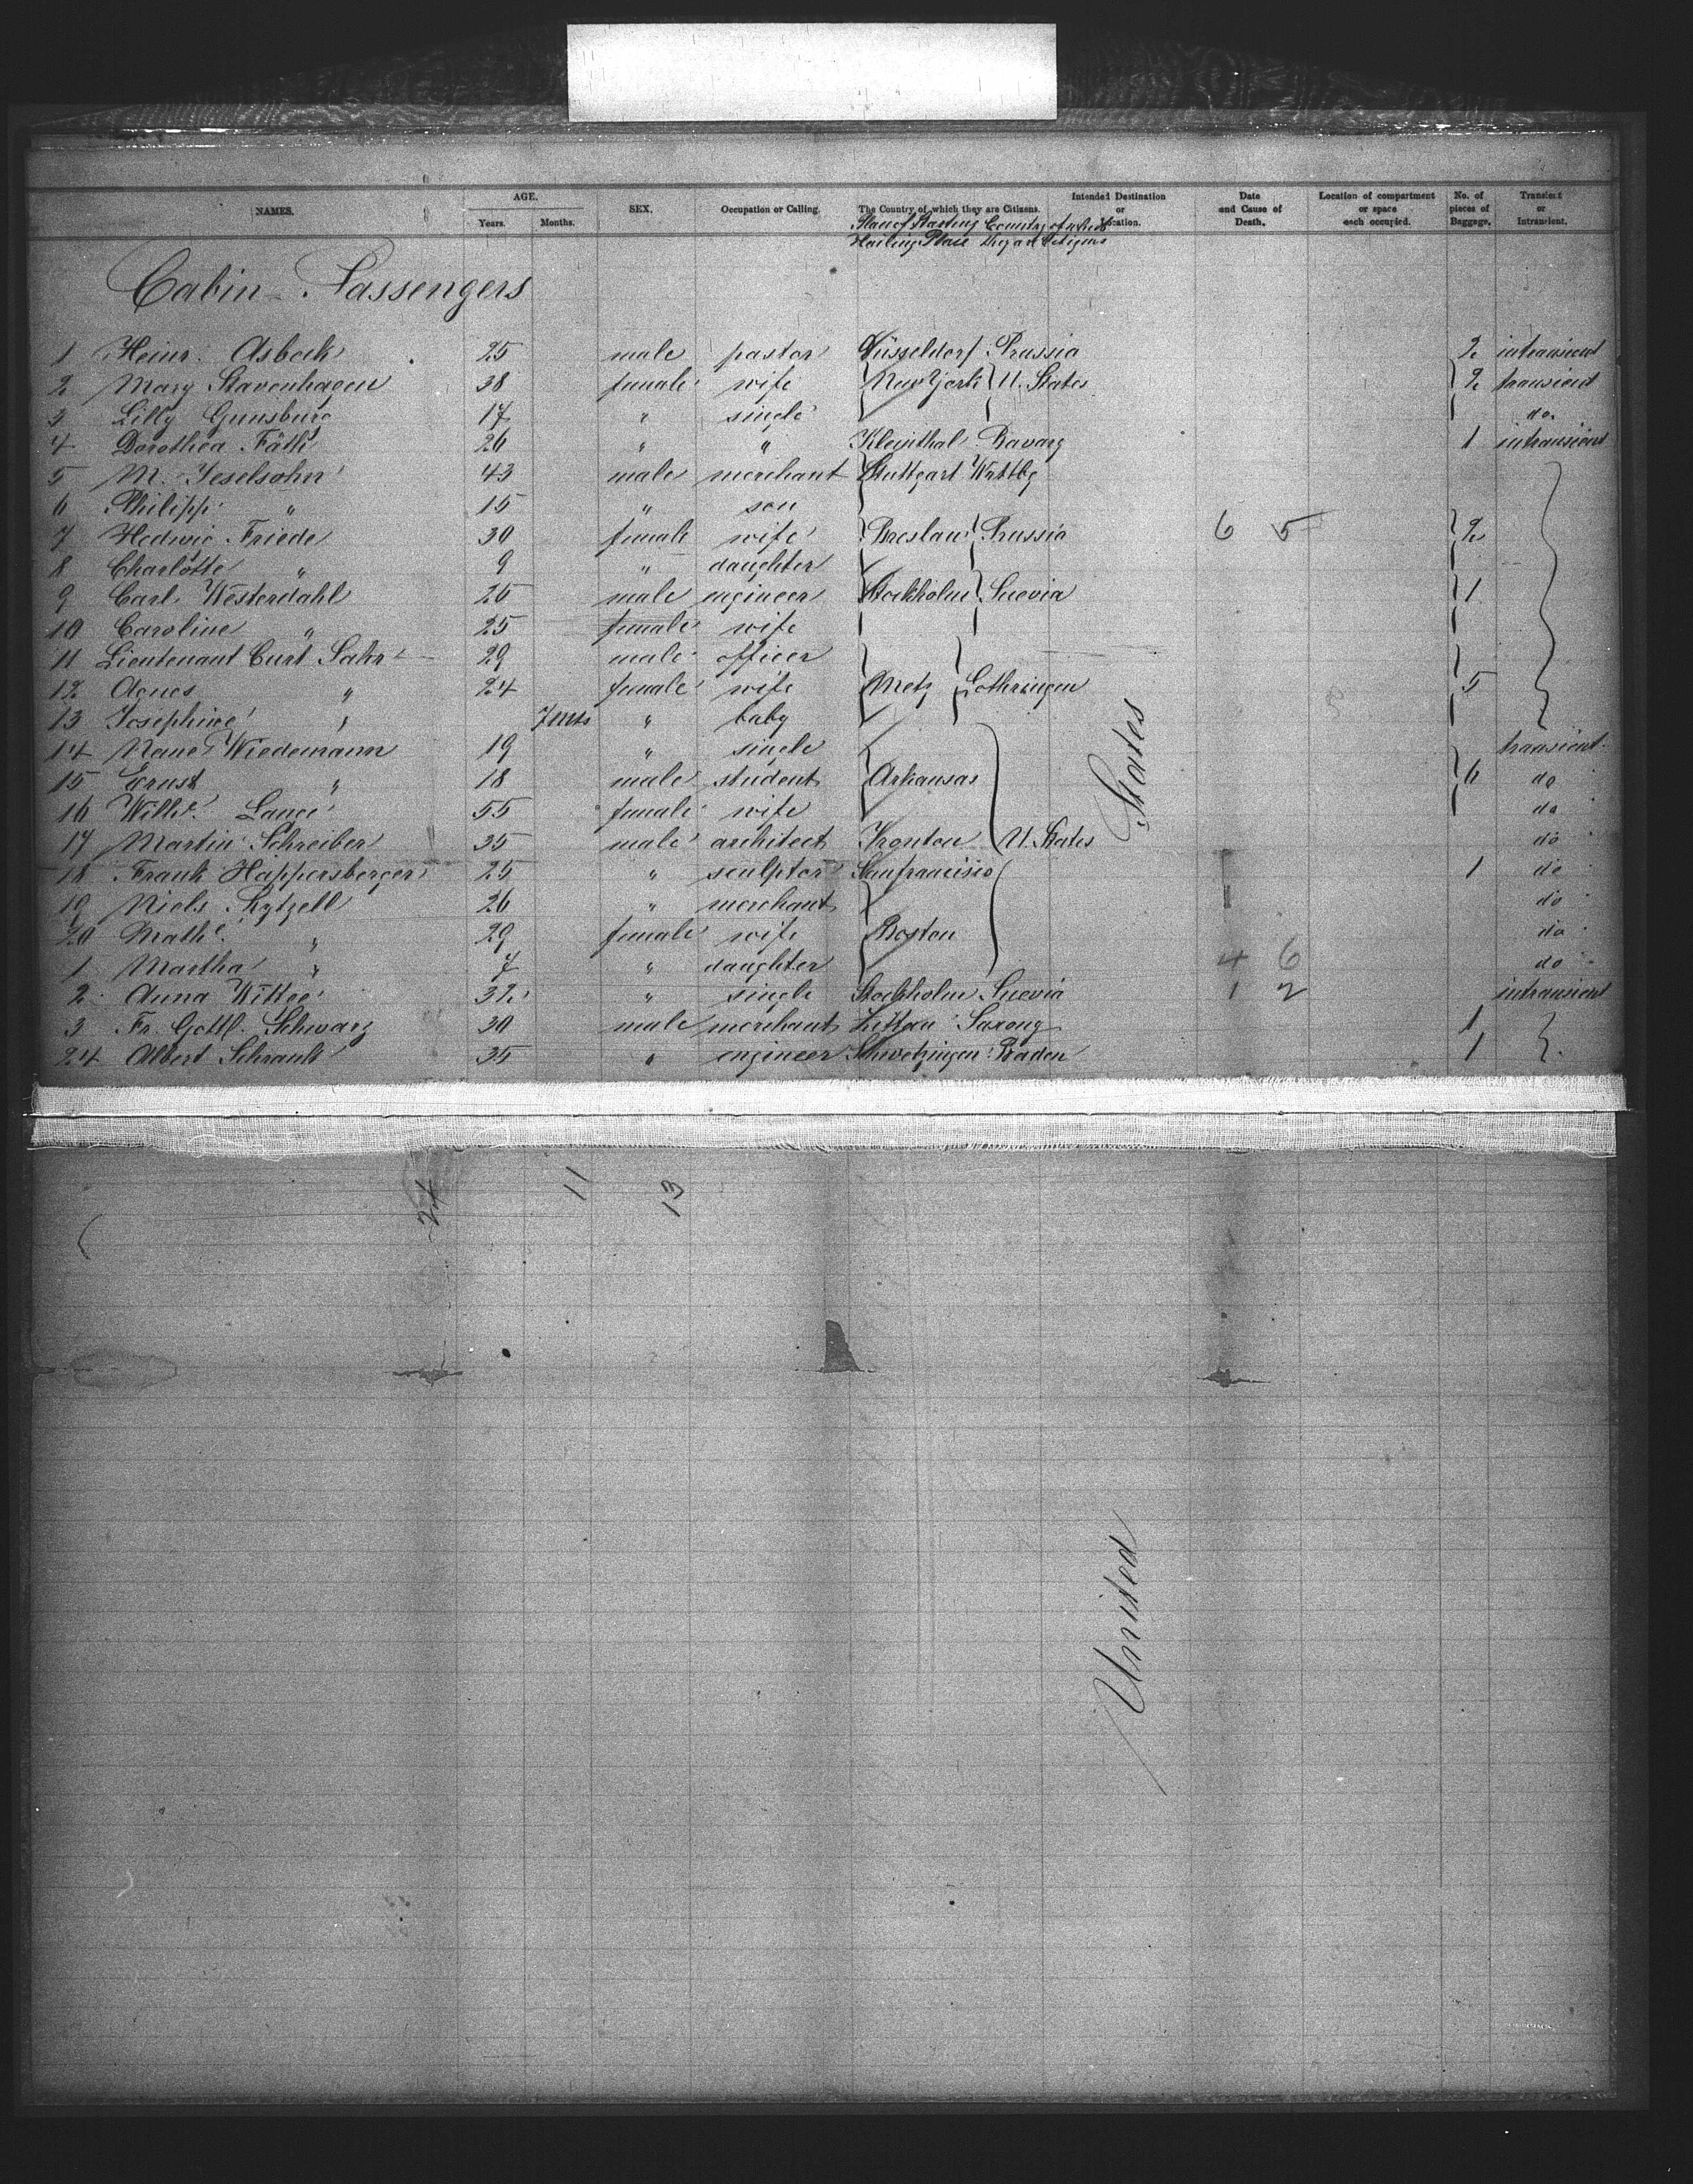 NAMES. AGE. Years. Months. SEX. Occupation or Calling. The Country of which they are Citizens. Intended Destination or Location. Date and Cause of Death. Location of compartment or space each occupied. No. of pieces of Baggage. Transient or Intransient.
Place Country of which
Hailing Place they are Citizens
Cabin-Passengers
1 Heinr. Asbeck 25 male pastor Düsseldorf Prussia 2 intransient
2 Mary Stavenhagen 38 female wife New York U. States 2 transient
3 Lilly Gunsburg 17 " single do.
4 Dorothea Fäth 26 " " Kleinthal Bavary 1 intransient
5 M. Jeselsohn 43 male merchant Stuttgart Wttbg
6 Philipp " 15 " son
7 Hedwig Friede 30 female wife Breslau Prussia 6 5 2
8 Charlotte " 9 " daughter
9 Carl Westerdahl 26 male engineer Stockholm Suevia 1
10 Caroline " 25 female wife
11 Lieutenant Curt Sahr 29 male officer
12 Agnes " 24 female wife Metz Lothringen 5
13 Josephine " 7 mts " baby
14 Wiedemann 19 " single transient
15 Ernst " 18 male student Arkansas 6 do
16 Wilhe. Lange 55 female wife do
17 Martin Schreiber 35 male architect Ironton U. States do
18 Frank Happersberger 25 " sculptor Sanfrancisco 1 do
19 Niels 26 " merchant do
20 Mathe. " 29 female wife Boston do
1 Martha " 7 " daughter 4 6 do
2 Anna 32 " single Stockholm Suevia 1 2 intransient
3 Fr. Gottl. Schwarz 30 male merchant Zittau Saxony 1
24 Albert Schrank 35 " engineer Schwetzingen Baden 1
24 11 13
United States